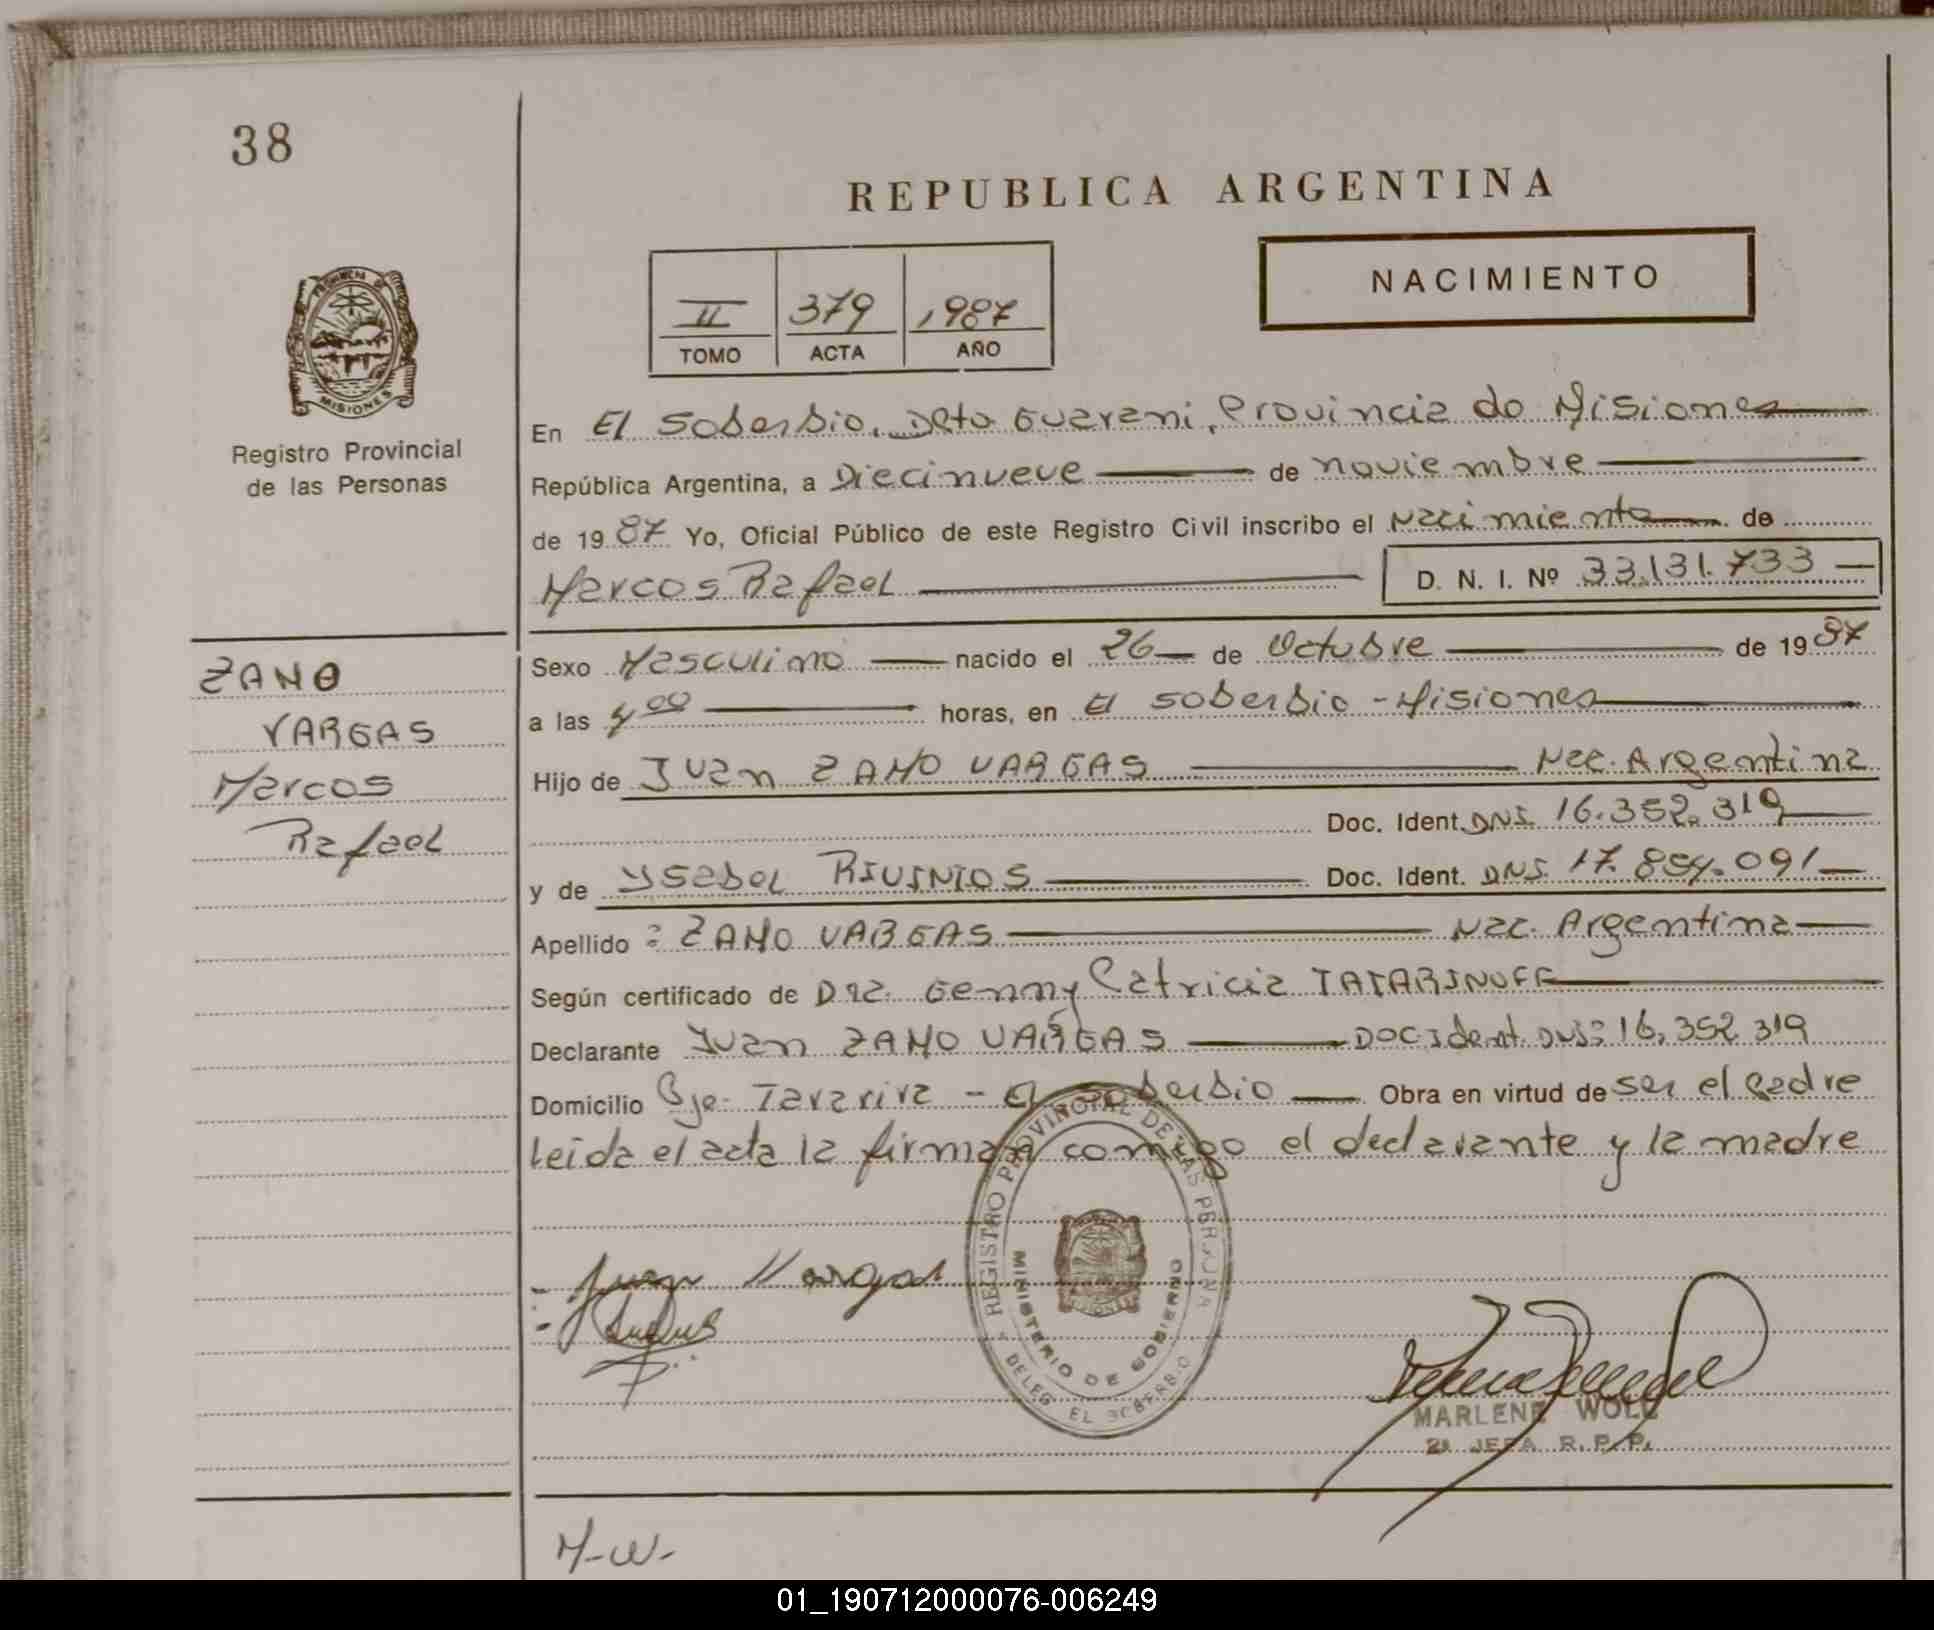 38
REPUBLICA ARGENTINA
NACIMIENTO
II 379 1987
TOMO ACTA AÑO
PROVINCIA DE
MISIONES
Registro Provincial
de las Personas
En El Soberbio, Dpto Guarani, Provincia de Misiones
República Argentina, a Diecinueve de noviembre
de 1987 Yo, Oficial Público de este Registro Civil inscribo el Nacimiento de
Marcos Rafael D. N. I. Nº 33.131.733
ZAMO
VARGAS
Marcos
Rafael
Sexo Masculino nacido el 26 de Octubre de 1987
a las 4,00 horas, en El Soberbio - Misiones
Hijo de Juan ZAMO VARGAS Nac. Argentina
Doc. Ident. DNI. 16.352.319
y de Ysabel RIVINIOS Doc. Ident. DNI. 17.854.091
Apellido : ZAMO VARGAS Nac. Argentina
Según certificado de Dra. Genny Patricia TATARINOFF
Declarante Juan ZAMO VARGAS Doc. Ident. DNI: 16,352 319
Domicilio Pje. Tararira - El Soberbio Obra en virtud de ser el Padre
leida el acta la firman comigo el declarante y la madre
REGISTRO PROVINCIAL DE LAS PERSONA
MINISTERIO DE GOBIERNO
DELEG EL SOBERBIO
Juan Vargas
MARLENE WOLL
2ª JEFA R.P.P.
M-W-
01_190712000076-006249